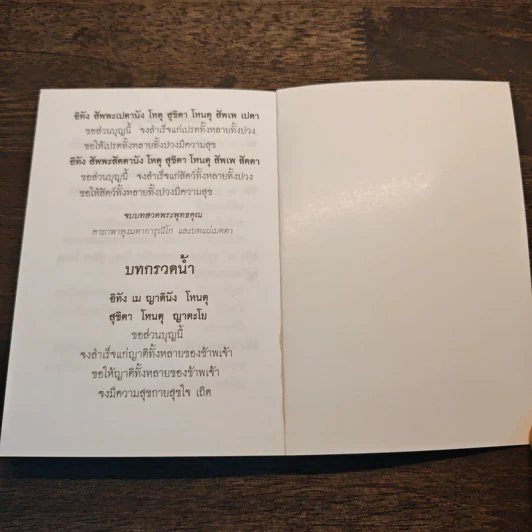 อิทัง สัพพะเปตานัง โหตุ สุขิตา โหนตุ สัพเพ เปตา
ขอส่วนบุญนี้ จงสำเร็จแก่เปรตทั้งหลายทั้งปวง
ขอให้เปรตทั้งหลายทั้งปวงมีความสุข
อิทัง สัพพะสัตตานัง โหตุ สุขิตา โหนตุ สัพเพ สัตตา
ขอส่วนบุญนี้ จงสำเร็จแก่สัตว์ทั้งหลายทั้งปวง
ขอให้สัตว์ทั้งหลายทั้งปวงมีความสุข
จบบทสวดพระพุทธคุณ
คาถาพาหุงมหาการุณิโก และบทแผ่เมตตา
บทกรวดน้ำ
อิทัง เม ญาตินัง โหนตุ
สุขิตา โหนตุ ญาตะโย
ขอส่วนบุญนี้
จงสำเร็จแก่ญาติทั้งหลายของข้าพเจ้า
ขอให้ญาติทั้งหลายของข้าพเจ้า
จงมีความสุขกายสุขใจ เถิด